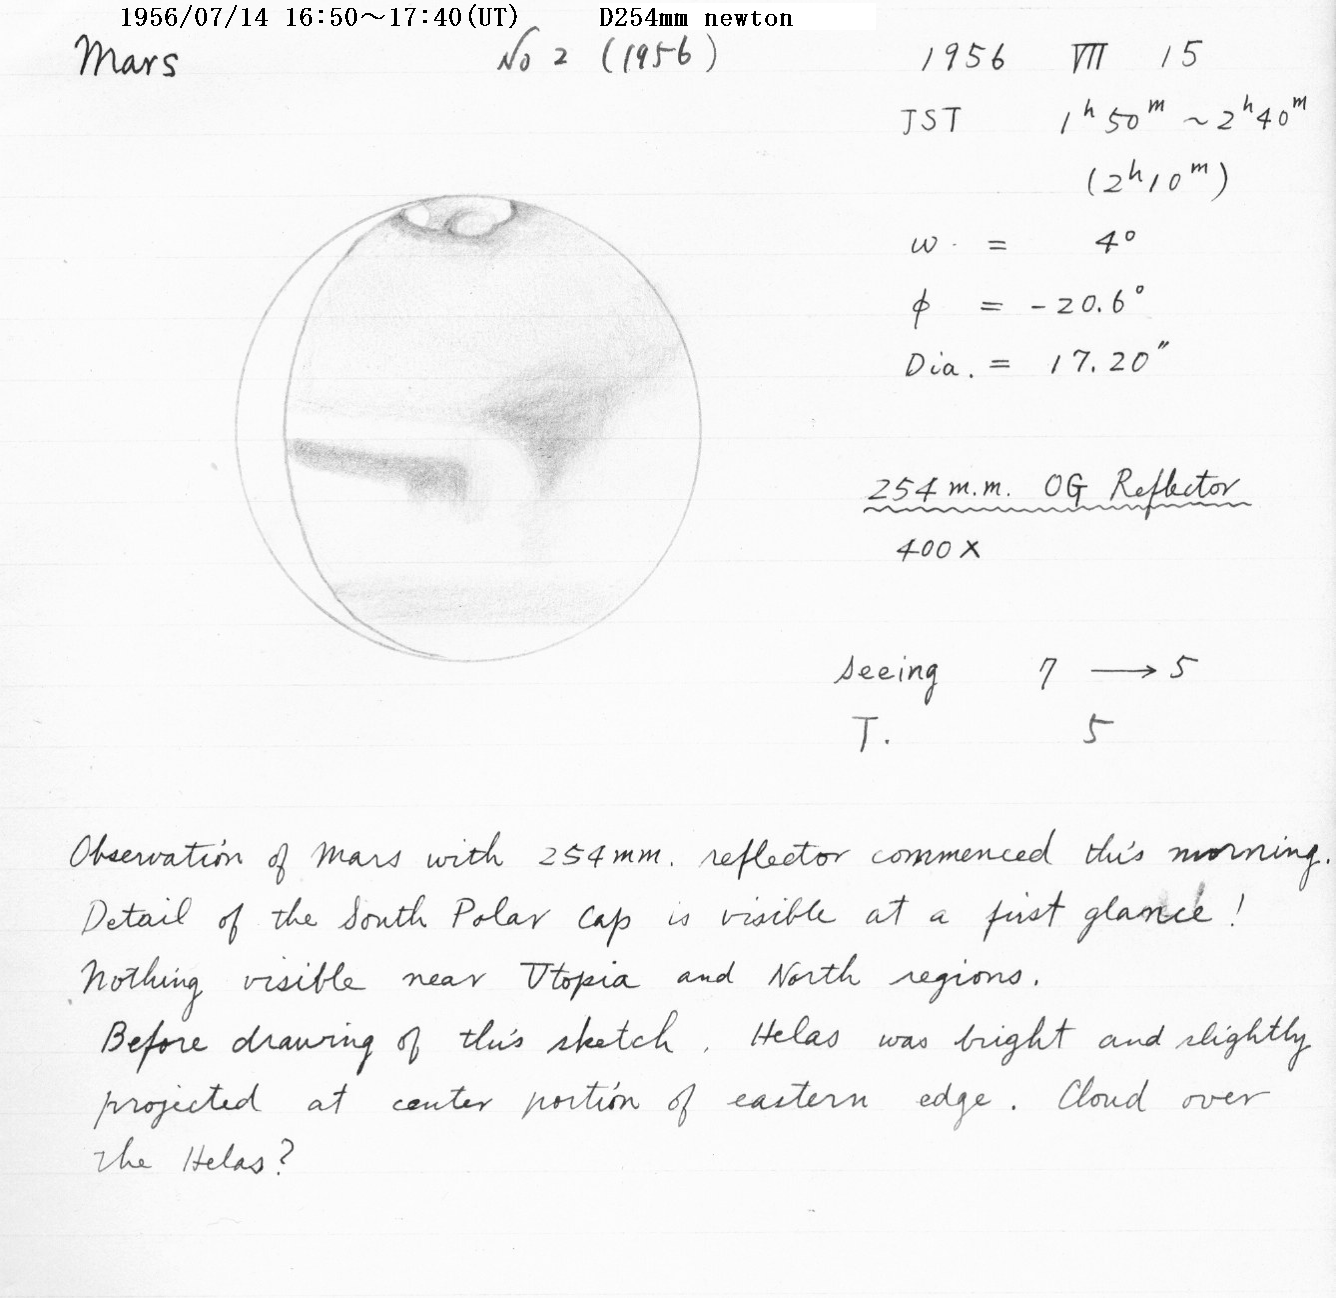 1956/07/14 16:50～17:40(UT) D254mm newton
Mars No 2 (1956) 1956 VII 15
JST 1h 50m ~ 2h 40m
(2h 10m)
ω. = 4°
φ = -20.6°
Dia. = 17.20″
254 m.m. OG Reflector
400 X
Seeing 7 → 5
T. 5
Observation of Mars with 254 mm. reflector commenced this morning.
Detail of the South Polar Cap is visible at a first glance!
Nothing visible near Utopia and North regions.
Before drawing of this sketch, Helas was bright and slightly
projected at center portion of eastern edge. Cloud over
the Helas?